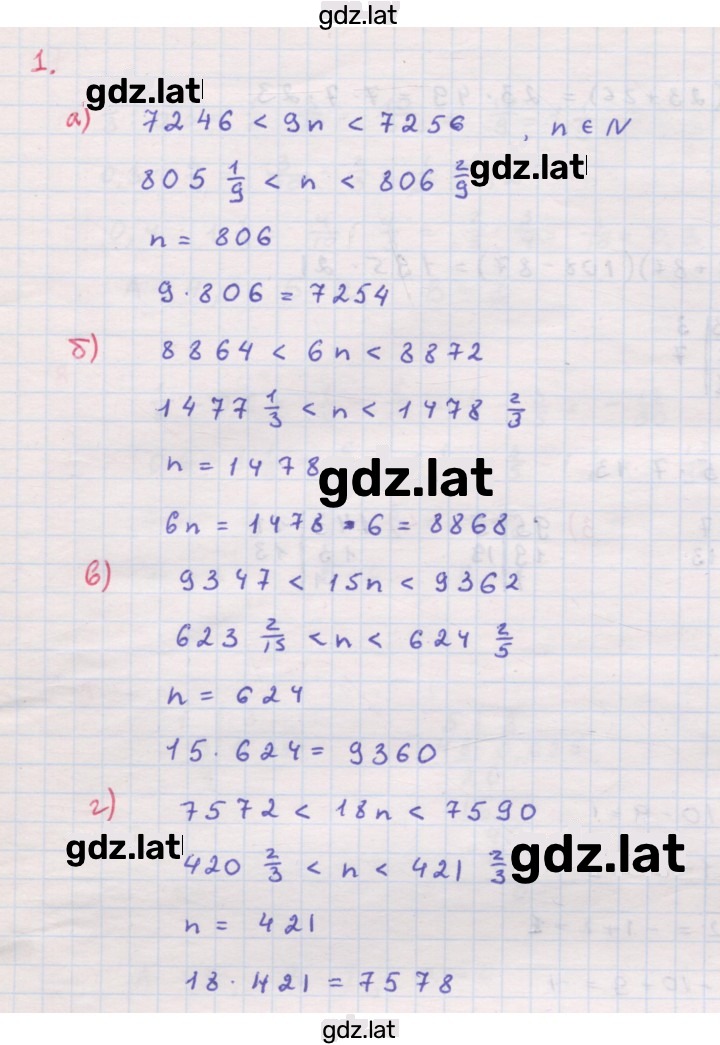 gdz.lat
1.
gdz.lat
а) 7246 < 9n < 7256 , n ∈ N
805 1/9 < n < 806 2/9 gdz.lat
n = 806
9 · 806 = 7254
б) 8864 < 6n < 8872
1477 1/3 < n < 1478 2/3
n = 1478 gdz.lat
6n = 1478 · 6 = 8868
в) 9347 < 15n < 9362
623 2/15 < n < 624 2/5
n = 624
15 · 624 = 9360
г) 7572 < 18n < 7590
gdz.lat 420 2/3 < n < 421 2/3 gdz.lat
n = 421
18 · 421 = 7578
gdz.lat